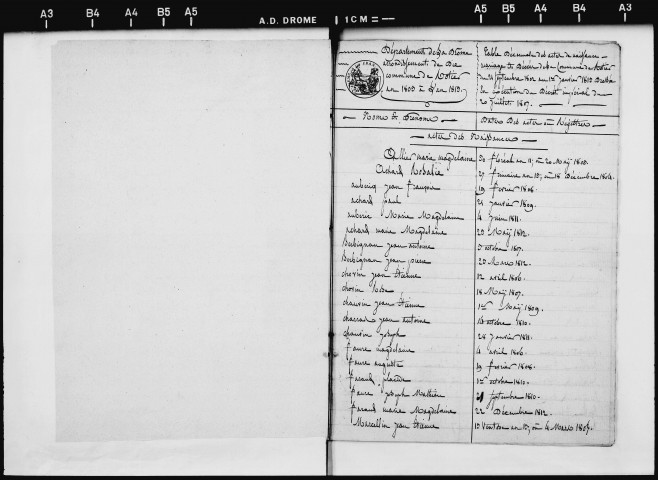 A3 B4 A4 B5 A5 A.D. DROME 1 CM A5 B5 A4 B4 A3
Département de la Drome
arrondissement de Die
commune de
an 1803 à l'an 1813.
Table Décennale des actes de naissances
mariage & Décès de la Commune de
du 24 septembre 1802 au 1er janvier 1813
la execution du Décret impérial du
20 Juillet 1807.
Noms & Prénoms
Dates Des actes au Registres
actes des Naissances
Allier marie magdelaine 30 floréal an 11, ou 20 Maij 1803.
Achard Rosalie 27 frimaire an 13, ou 18 Décembre 1804.
jean françois 19 février 1806.
achard paul 21 janvier 1809.
auberic Marie Magdelaine 4 Juin 1811.
achard marie Magdelaine 20 Maij 1812.
Berbignan jean antoine octobre 1807.
Berbignan jean pierre 20 Mars 1812.
chovin jean Etienne 12 avril 1806.
chovin Rose 18 Maij 1807.
chauvin jean Etienne 1er Maij 1809.
jean antoine 16 octobre 1810.
chauvin joseph 28 janvier 1811.
faure magdelaine 4 avril 1806.
faure auguste 19 février 1808.
faraud placide 1er octobre 1810.
faure joseph Mathieu 21 septembre 1810.
faraud marie Magdelaine 22 Décembre 1812.
Marcellin jean Etienne 13 Ventose an 12, ou 4 Mars 1804.
A3 B4 A4 B5 A5 A5 B5 A4 B4 A3